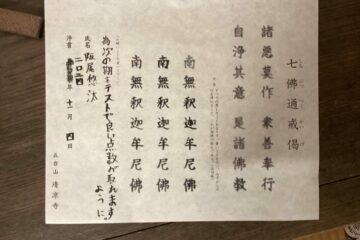 七佛通戒偈
諸悪莫作 衆善奉行
自浄其意 是諸佛教
南無釈迦牟尼佛
南無釈迦牟尼佛
南無釈迦牟尼佛
為次の期末テストで良い点数が取れます
ように
氏名 阪尾悠汰
浄書 二〇二四年 十一月 四日
五台山 清凉寺